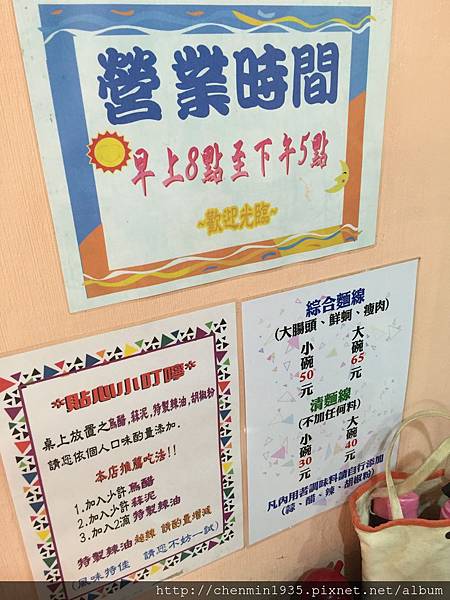 營業時間
早上8點至下午5點
~歡迎光臨~
*貼心小叮嚀*
桌上放置之烏醋,蒜泥,特製辣油,胡椒粉
請您依個人口味酌量添加.
本店推薦吃法!!
1.加入少許烏醋
2.加入少許蒜泥
3.加入2滴 特製辣油
特製辣油超辣 請酌量增減
(風味特佳 請您不妨一試)
綜合麵線
(大腸頭、鮮蚵、瘦肉)
小碗50元
大碗65元
清麵線
(不加任何料)
小碗30元
大碗40元
凡內用者調味料請自行添加
(蒜、醋、辣、胡椒粉)
http://chenmin1935.pixnet.net/album